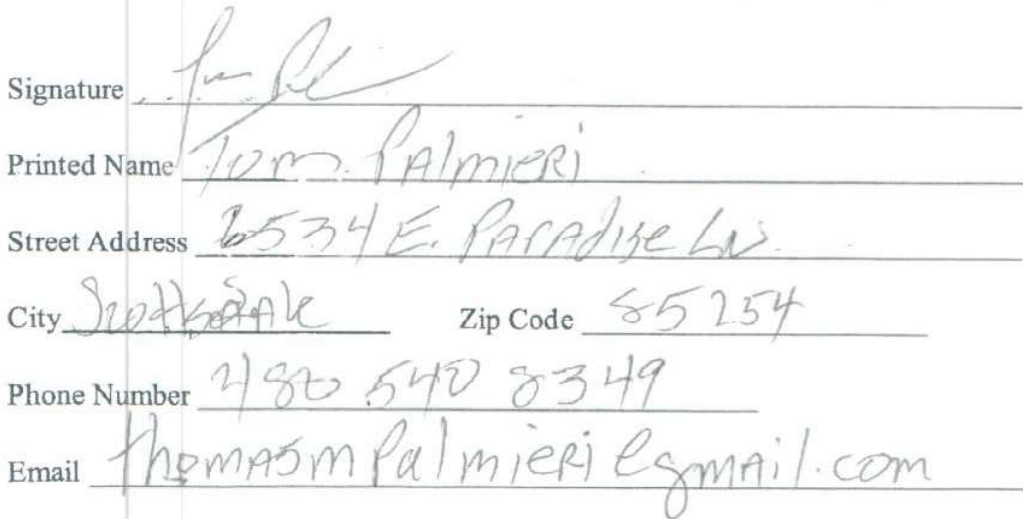 Signature
Printed Name Tom Palmieri
Street Address 6534 E. Paradise Ln.
City Scottsdale Zip Code 85254
Phone Number 480 540 8349
Email thomasmpalmieri@gmail.com